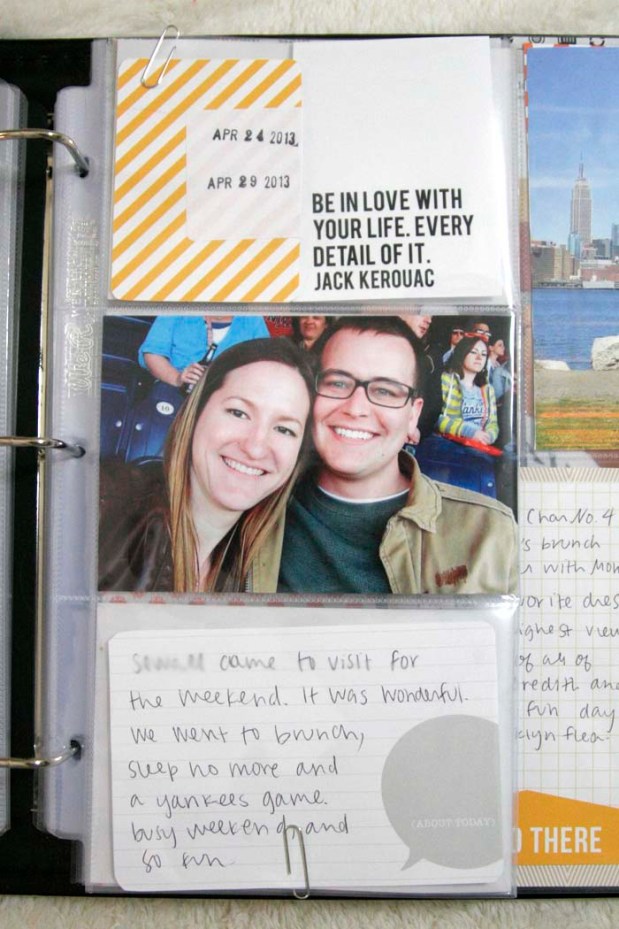 APR 24 2013
APR 29 2013
BE IN LOVE WITH
YOUR LIFE. EVERY
DETAIL OF IT.
JACK KEROUAC
came to visit for
the weekend. It was wonderful.
we went to brunch,
sleep no more and
a yankees game.
busy weekend and
so fun
(ABOUT TODAY)
No. 4
brunch
with
fun day
flea.
THERE